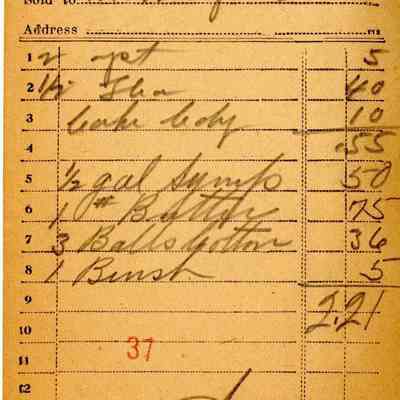 Sold to
Address
1 2 yst 5
2 1/2 Tea 40
3 bake body 10
4 .55
5 1/2 gal Syrup 50
6 1 # Butter 75
7 3 Balls Cotton 36
8 1 Brush 5
9 2.21
10
11 37
12